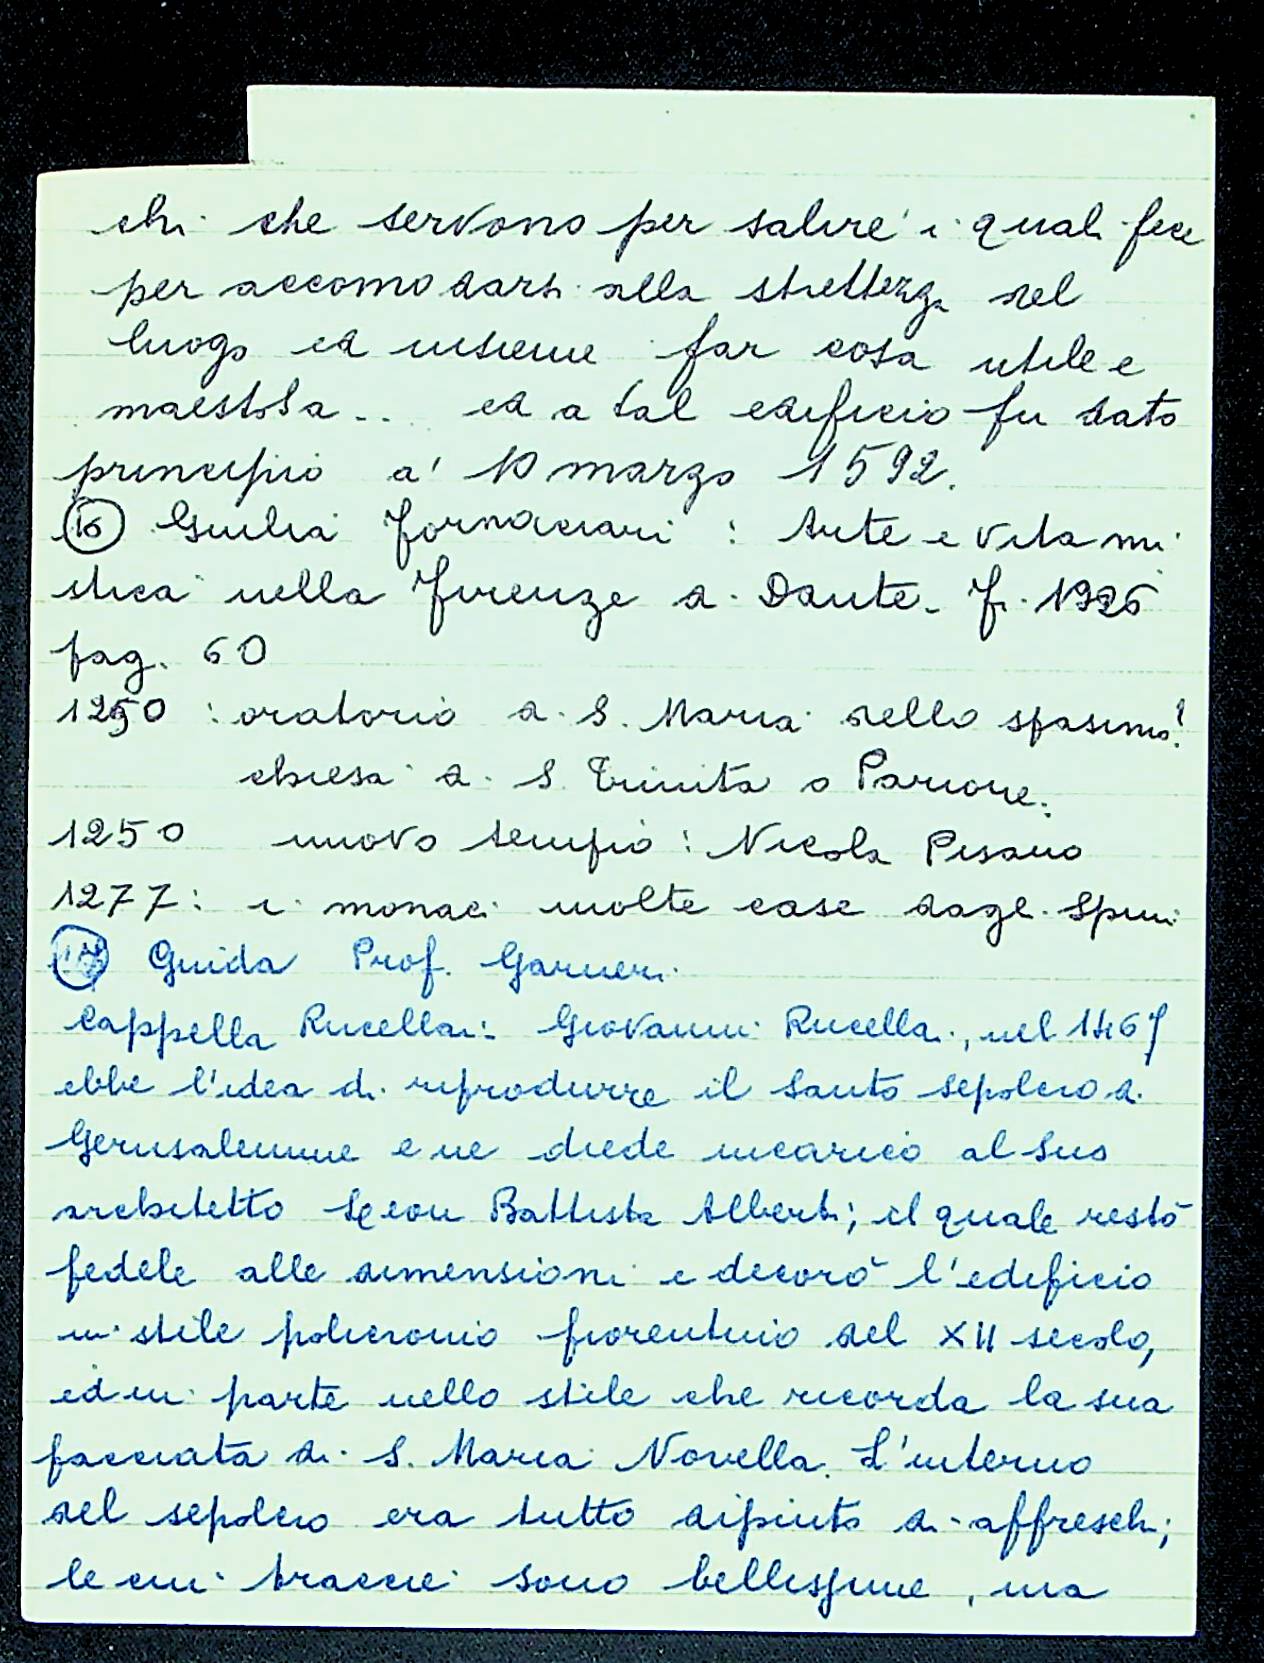 chi che servono per salire i quali fece
per accomodarsi alla strettezza del
luogo ed insieme far cosa utile e
maestosa... ed a tal edificio fu dato
principio a' 10 marzo 1592.
16 Giulia Fornaciari : Arte e vita mi
stica nella Firenze di Dante. F. 1926
pag. 60
1250 : oratorio di S. Maria dello spasimo!
chiesa di S. Trinita o Parione.
1250 nuovo tempio : Nicola Pisano
1277 : i monaci molte case dagli Spini
Guida Prof. Garneri.
Cappella Rucellai: Giovanni Rucellai, nel 1467
ebbe l'idea di riprodurre il Santo sepolcro di
Gerusalemme e ne diede incarico al suo
architetto Leon Battista Alberti; il quale restò
fedele alle dimensioni e decorò l'edificio
in stile policromo fiorentino del XII secolo,
ed in parte nello stile che ricorda la sua
facciata di S. Maria Novella. L'interno
del sepolcro era tutto dipinto di affreschi;
le cui traccie sono bellissime, ma